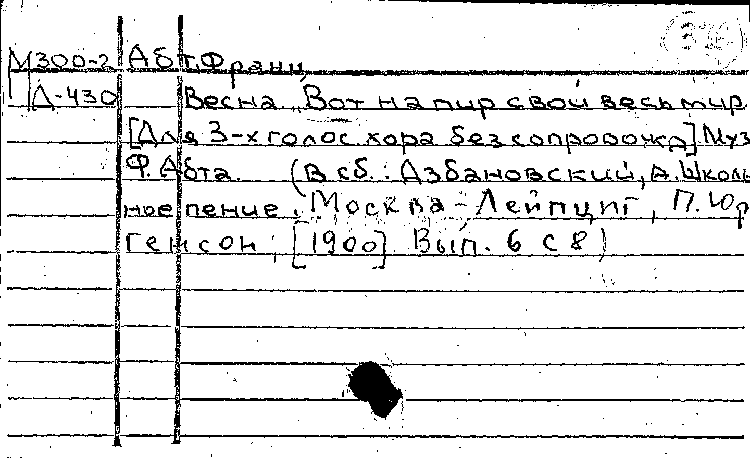 М300-2 Абт, Франц
Д-430 Весна. Вот на пир свой весь мир.
[Для 3-х голос. хора без сопровожд] Муз
Ф. Абта. (В сб.: Азбановский, А. Школь
ное пение. Москва-Лейпциг, П. Юр
генсон, [1900] Вып. 6 с 8)